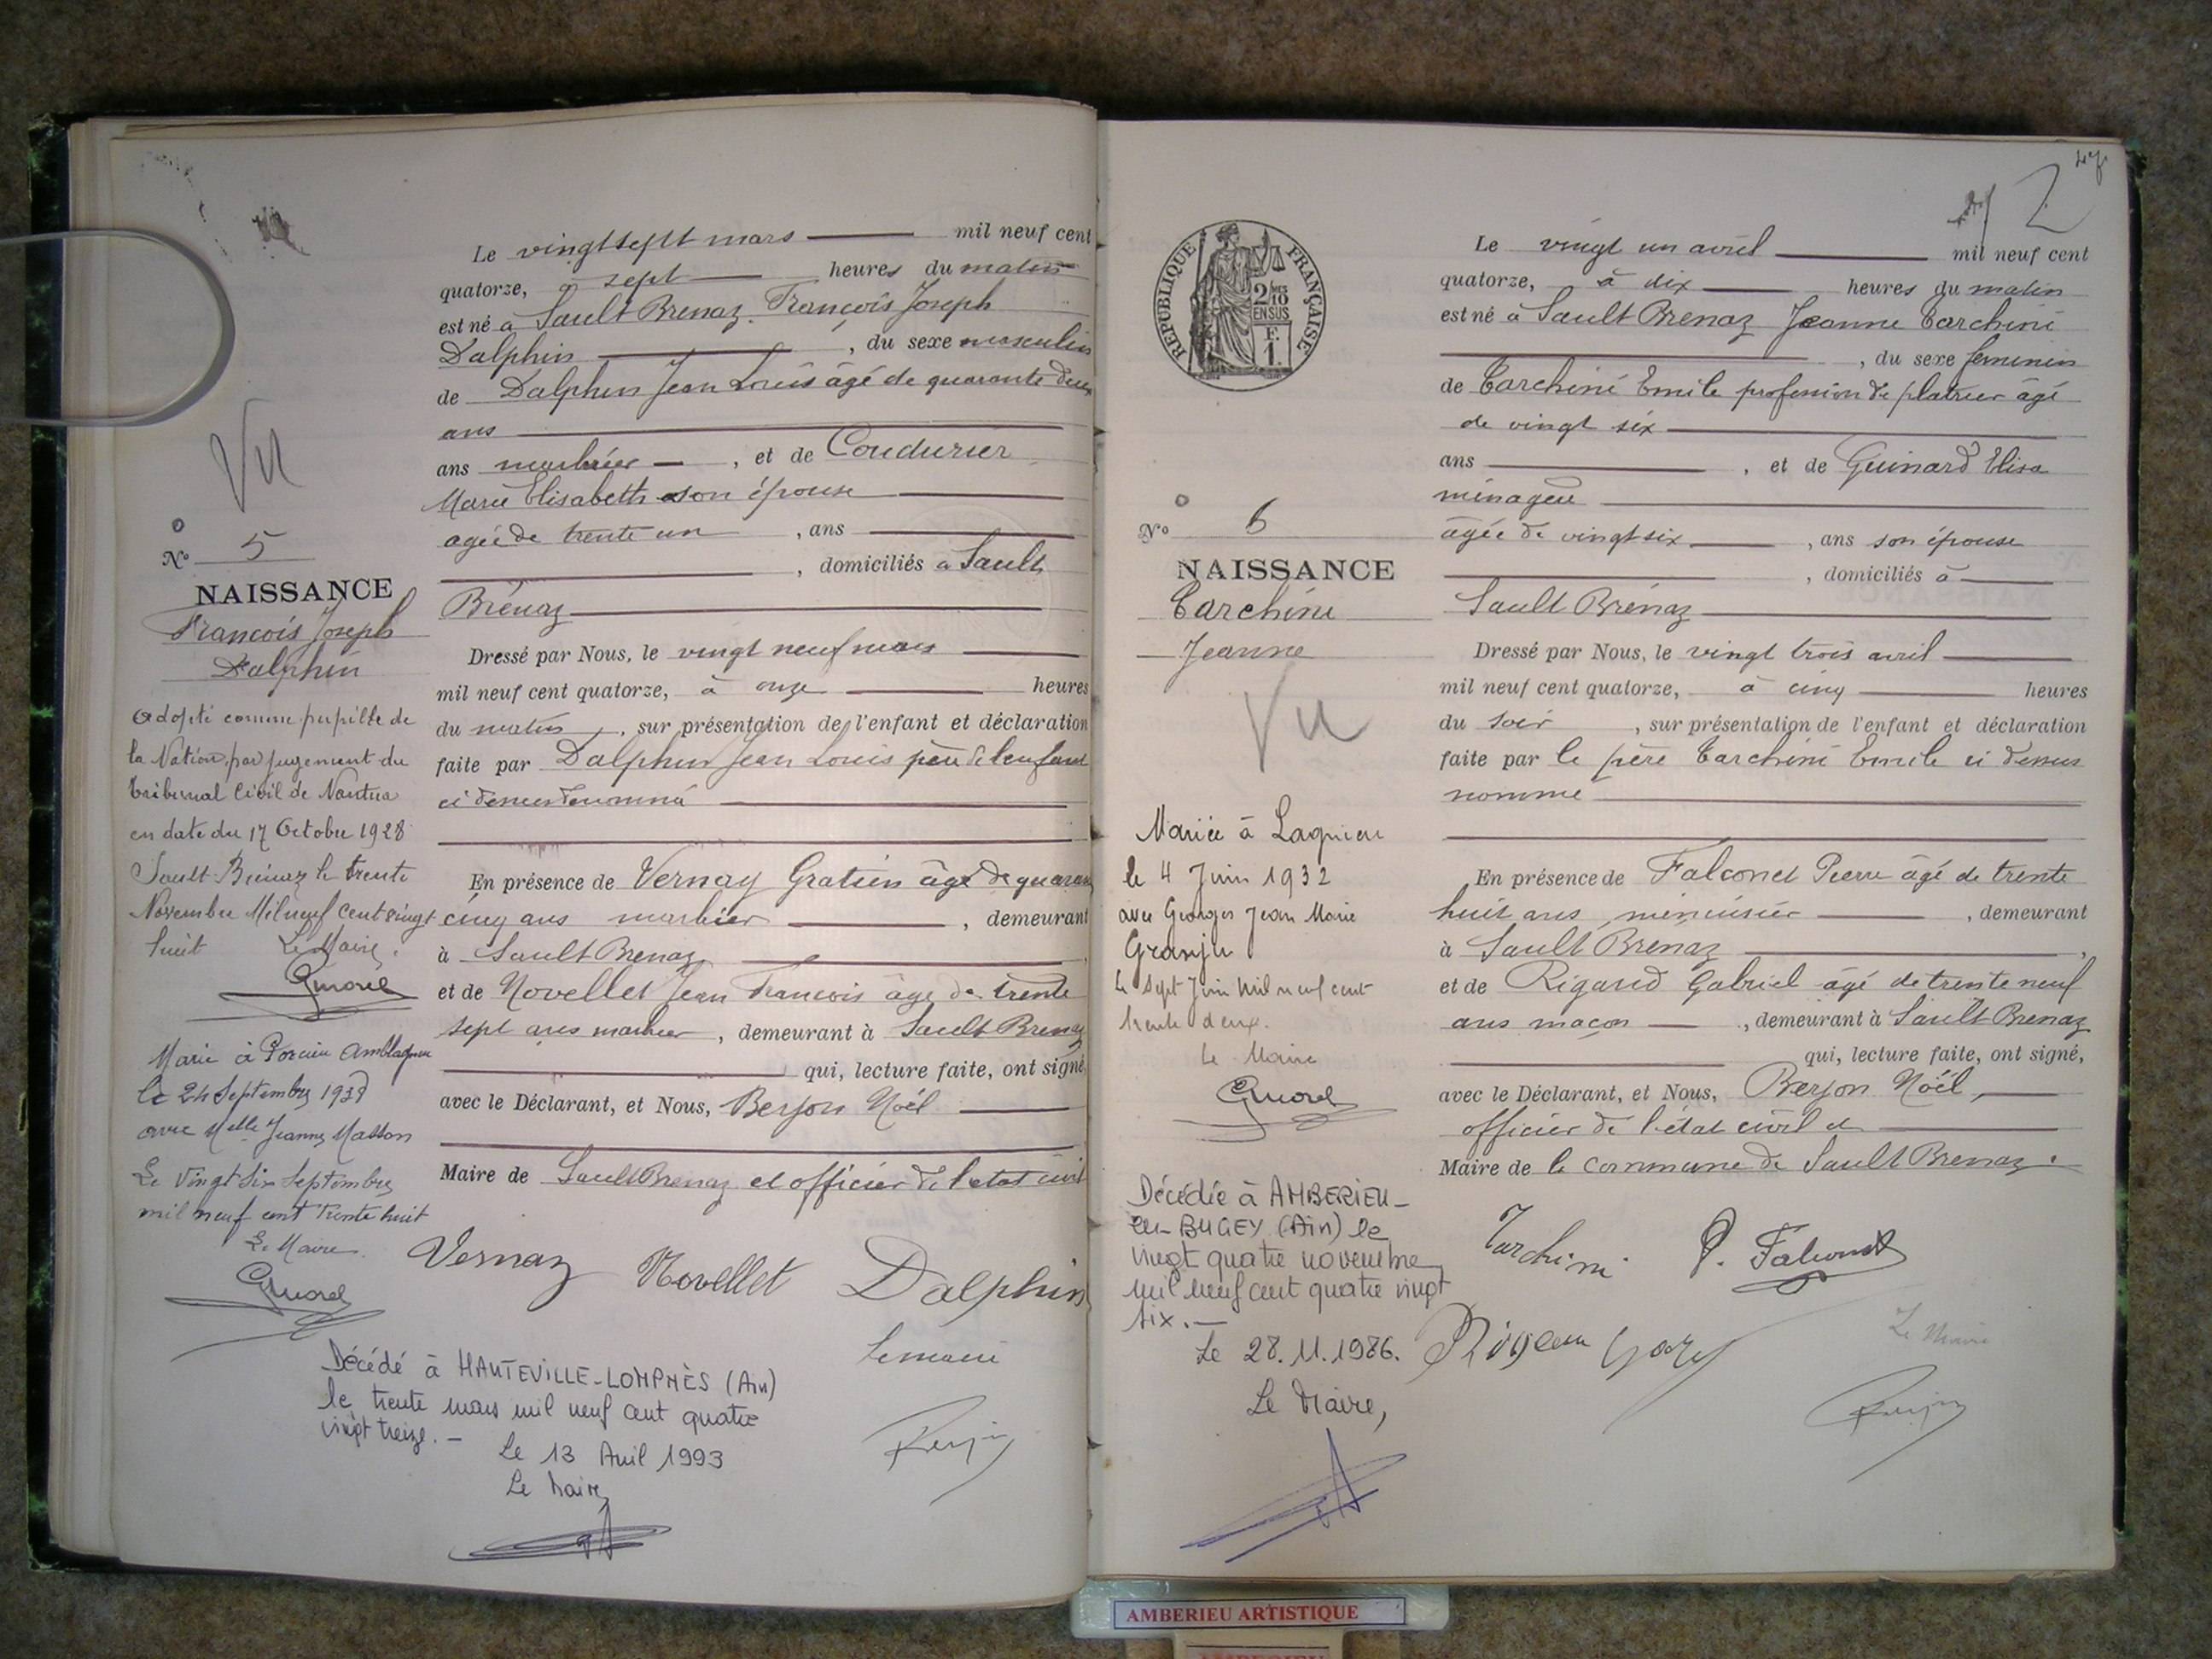 Le vingt sept mars mil neuf cent
quatorze, à sept heures du matin
est né à Sault Brenaz François Joseph
Dalphin , du sexe masculin
de Dalphin Jean Louis âgé de quarante deux
ans
ans marbrier , et de Coudurier
Marie Elisabeth son épouse
agée de trente un , ans
, domiciliés à Sault
Brénaz
Dressé par Nous, le vingt neuf mars
mil neuf cent quatorze, à onze heures
du matin , sur présentation de l'enfant et déclaration
faite par Dalphin Jean Louis père de l'enfant
ci dessus dénommé
En présence de Vernay Gratien âgé de quarante
cinq ans marbrier , demeurant
à Sault Brenaz
et de Novellet Jean François âgé de trente
sept ans marbrier , demeurant à Sault Brenaz
qui, lecture faite, ont signé
avec le Déclarant, et Nous, Berjon Noël
Maire de Sault Brenaz et officier de l'état civil
Vernaz Novellet Dalphin
Le maire
Vu
No 5
NAISSANCE
François Joseph
Dalphin
Adopté comme pupille de
la Nation par jugement du
Tribunal Civil de Nantua
en date du 17 Octobre 1928
Sault Brénaz le trente
Novembre Mil neuf cent vingt
huit Le Maire.
Marié à Porcieu Amblagnieu
le 24 Septembre 1938
avec Melle Jeanne Masson
Le Vingt Six Septembre
mil neuf cent trente huit
Le Maire
Décédé à HAUTEVILLE-LOMPNÈS (Ain)
le trente mars mil neuf cent quatre
vingt treize. -
Le 13 Avril 1993
Le Maire,
47
2
RÉPUBLIQUE FRANÇAISE
2 MES
10
EN SUS
F.
1.
Le vingt un avril mil neuf cent
quatorze, à dix heures du matin
est né à Sault Brenaz Jeanne Tarchini
, du sexe feminin
de Tarchini Emile profession de platrier âgé
de vingt six
ans , et de Guinard Elisa
ménagère
âgée de vingt six , ans son épouse
, domiciliés à
Sault Brénaz
Dressé par Nous, le vingt trois avril
mil neuf cent quatorze, à cinq heures
du soir , sur présentation de l'enfant et déclaration
faite par le père Tarchini Emile ci dessus
nommé
En présence de Falconet Pierre âgé de trente
huit ans menuisier , demeurant
à Sault Brénaz ,
et de Rigaud Gabriel âgé de trente neuf
ans maçon , demeurant à Sault Brenaz
qui, lecture faite, ont signé,
avec le Déclarant, et Nous, Berjon Noël,
officier de l'état civil et
Maire de la commune de Sault Brenaz.
Tarchini P. Falconet
Le Maire
No 6
NAISSANCE
Tarchini
Jeanne
Vu
Mariée à Lagnieu
le 4 Juin 1932
avec Georges Jean Marie
Granju
Le sept Juin mil neuf cent
trente deux.
Le Maire
Décédée à AMBERIEU-
en-BUGEY (Ain) le
vingt quatre novembre
mil neuf cent quatre vingt
six. -
Le 28.11.1986.
Le Maire,
AMBERIEU ARTISTIQUE
AMBERIEU